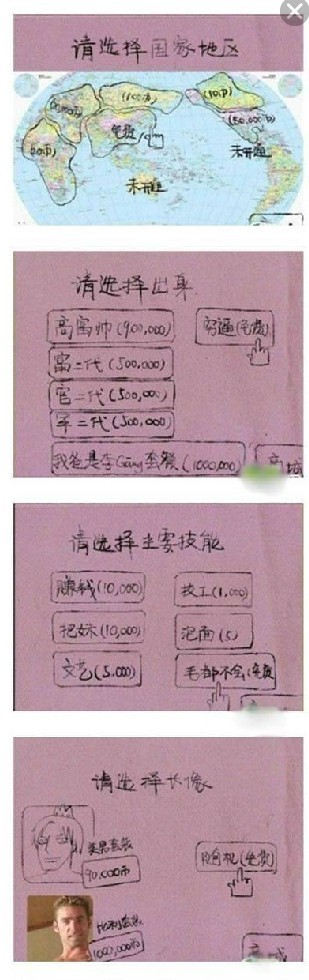 请选择国家地区
(100币)
(10币)
免费
(50,000币)
未开通
未开通
请选择出身
高富帅(900,000)
穷逼(免费)
富二代(500,000)
官二代(500,000)
军二代(500,000)
我爸是李Gang套餐(1000,000)
商城
请选择主要技能
赚钱(10,000)
技工(1,000)
把妹(10,000)
泡面(5)
文艺(5,000)
毛都不会(免费
请选择长像
90,000币
随机(免费)
1000,000币